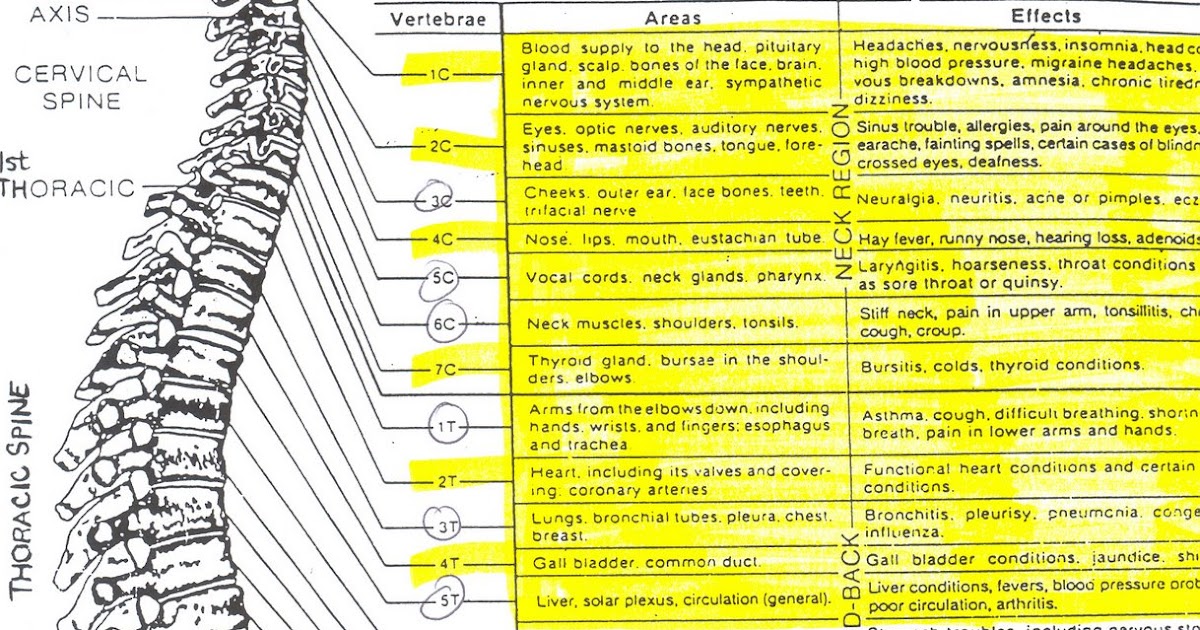 AXIS
CERVICAL
SPINE
1st
THORACIC
THORACIC SPINE
Vertebrae Areas Effects
1C
Blood supply to the head, pituitary
gland, scalp, bones of the face, brain,
inner and middle ear, sympathetic
nervous system.
Headaches, nervousness, insomnia, head
high blood pressure, migraine headaches,
vous breakdowns, amnesia, chronic
dizziness.
2C
Eyes, optic nerves, auditory nerves,
sinuses, mastoid bones, tongue, fore-
head
Sinus trouble, allergies, pain around the eyes,
earache, fainting spells, certain cases of
crossed eyes, deafness.
3C
Cheeks, outer ear, face bones, teeth,
trifacial nerve
Neuralgia, neuritis, acne or pimples,
4C
Nose, lips, mouth, eustachian tube.
Hay fever, runny nose, hearing loss,
5C
Vocal cords, neck glands, pharynx.
Laryngitis, hoarseness, throat conditions
as sore throat or quinsy.
6C
Neck muscles, shoulders, tonsils.
Stiff neck, pain in upper arm, tonsillitis,
cough, croup.
7C
Thyroid gland, bursae in the shoul-
ders, elbows.
Bursitis, colds, thyroid conditions.
NECK REGION
1T
Arms from the elbows down, including
hands, wrists, and fingers; esophagus
and trachea
Asthma, cough, difficult breathing,
breath, pain in lower arms and hands.
2T
Heart, including its valves and cover-
ing; coronary arteries
Functional heart conditions and certain
conditions.
3T
Lungs, bronchial tubes, pleura, chest,
breast.
Bronchitis, pleurisy, pneumonia,
influenza.
4T
Gall bladder, common duct.
Gall bladder conditions, jaundice,
5T
Liver, solar plexus, circulation (general).
Liver conditions, fevers, blood pressure
poor circulation, arthritis.
D-BACK